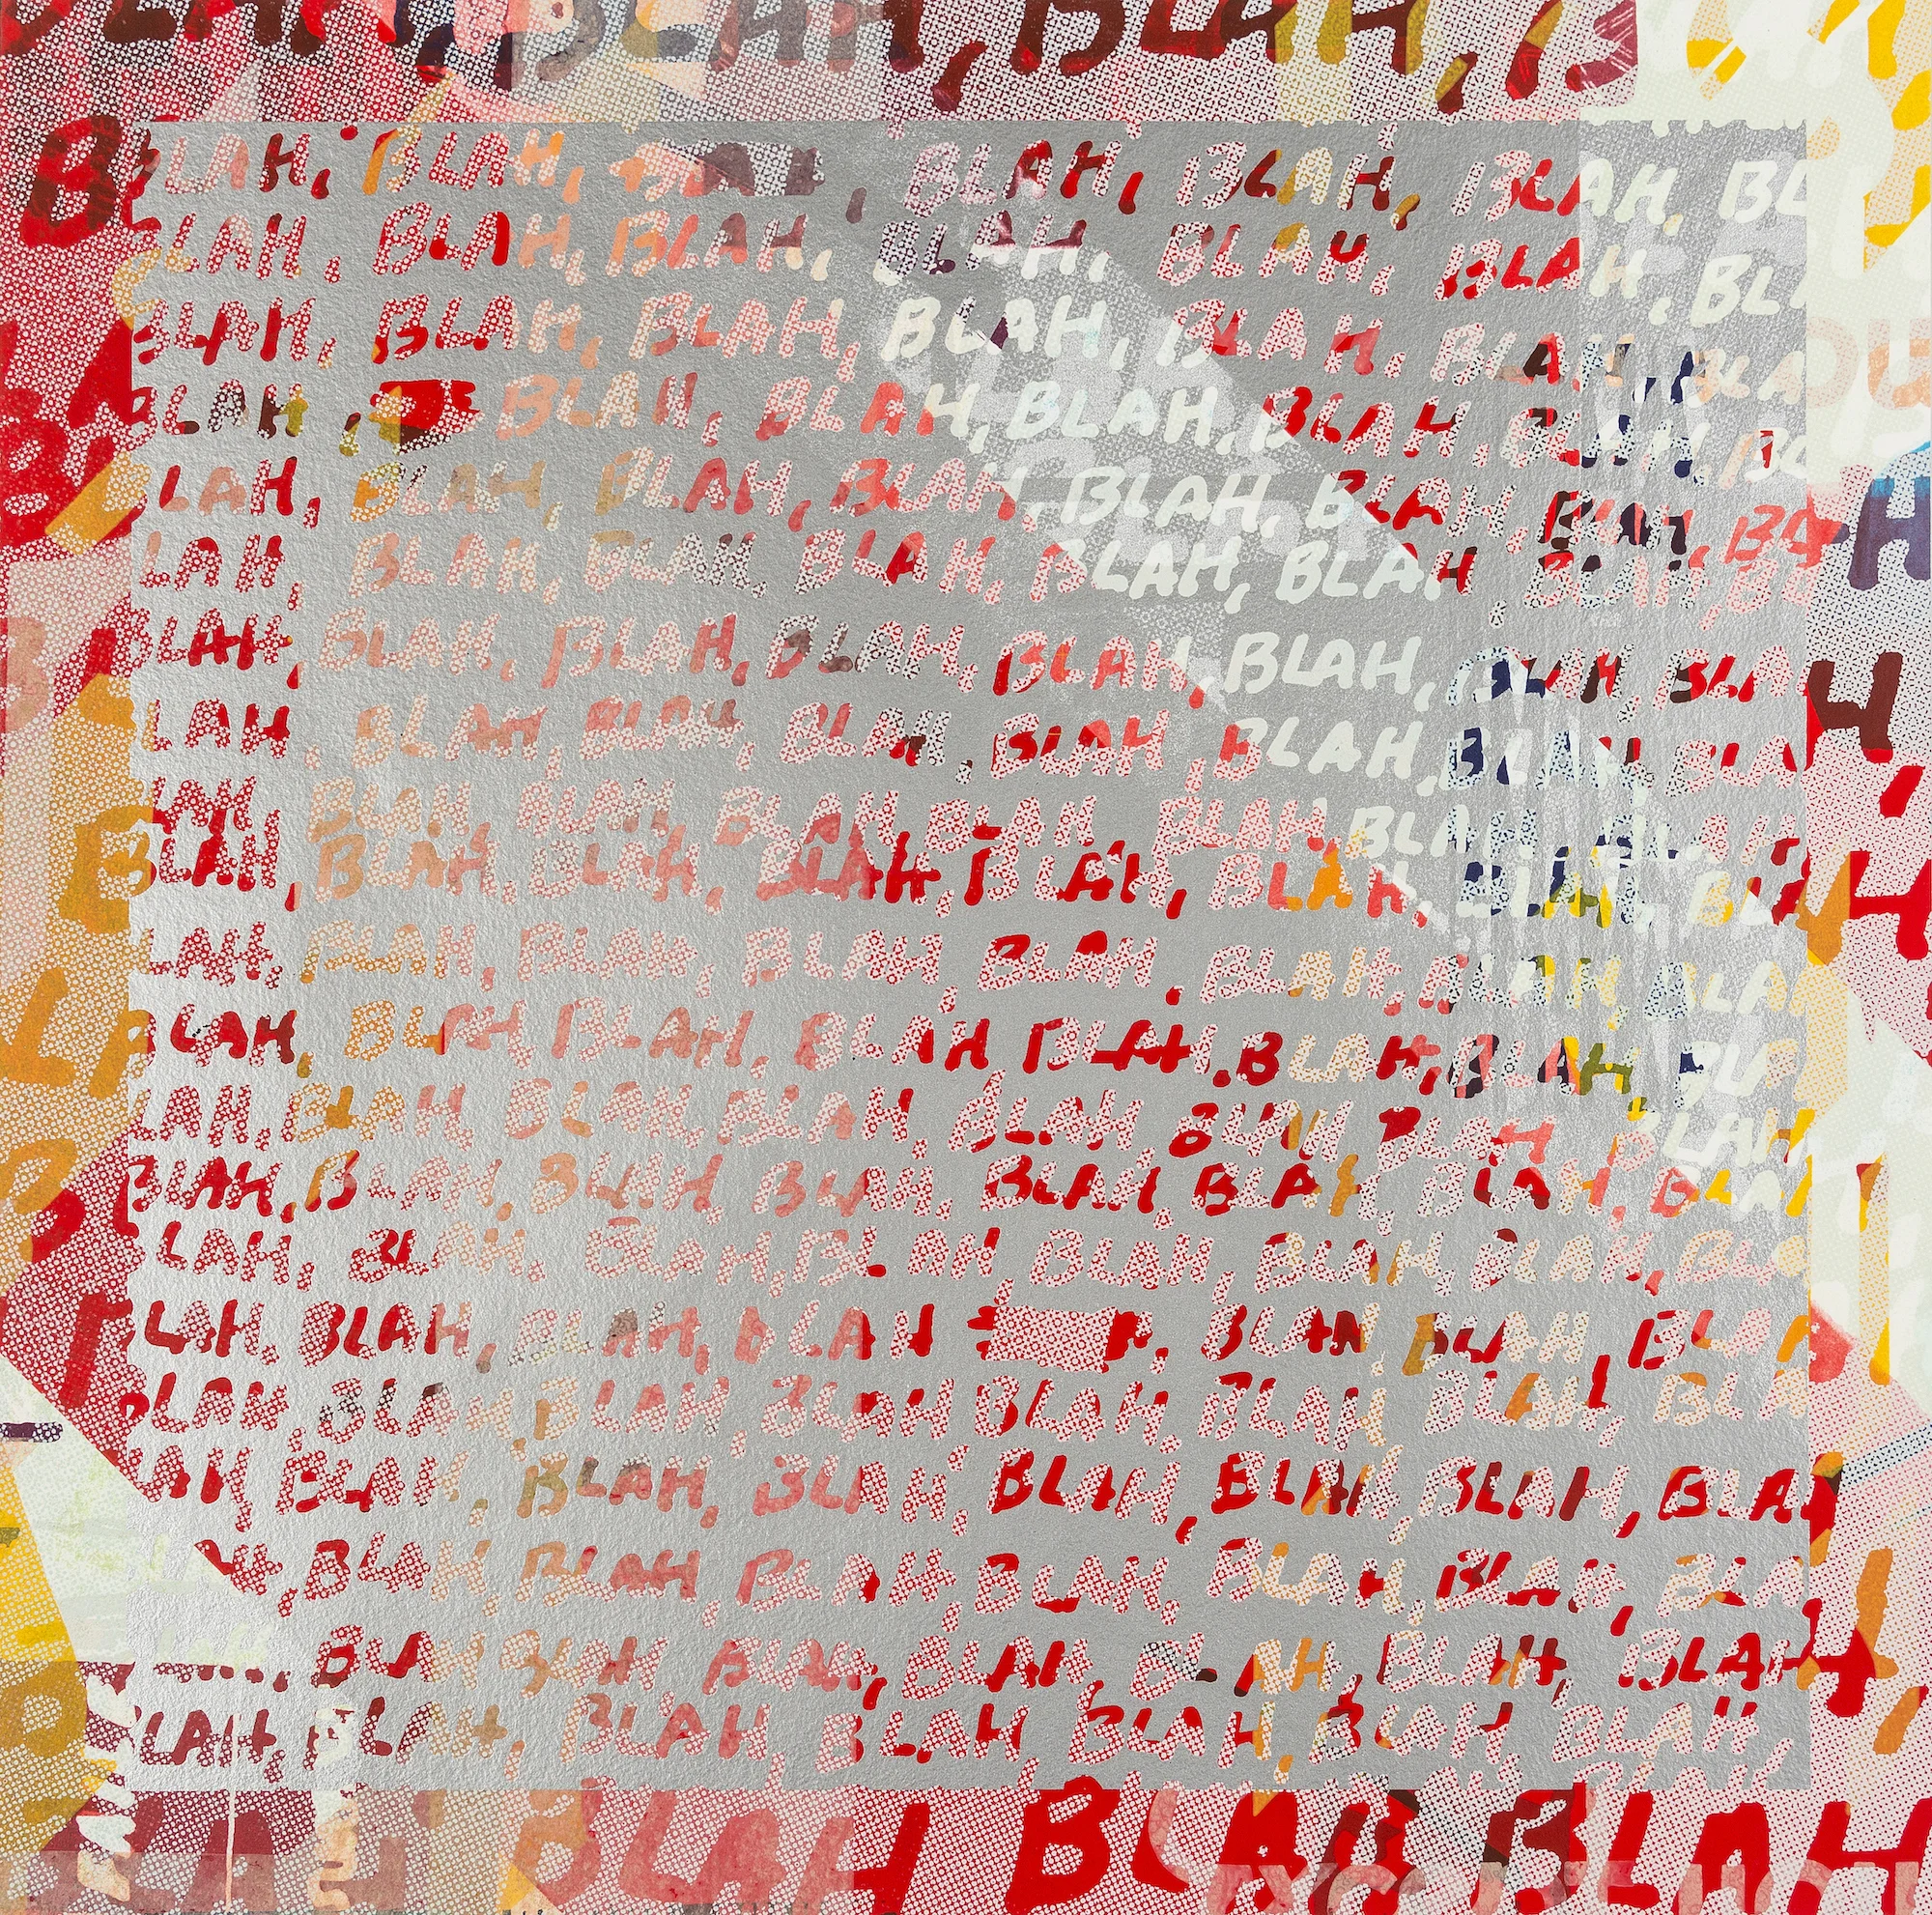 BLAH, BLAH, BLAH, B
BLAH, BLAH, BLAH, BLAH, BLAH, BLAH, BL
BLAH, BLAH, BLAH, BLAH, BLAH, BLAH, BLA
BLAH, BLAH, BLAH, BLAH, BLAH, BLAH, BLA
BLAH, BLAH, BLAH, BLAH, BLAH, BLAH, BL
BLAH, BLAH, BLAH, BLAH, BLAH, BLAH, BLAH, BL
LAH, BLAH, BLAH, BLAH, BLAH, BLAH, BLAH, BL
BLAH, BLAH, BLAH, BLAH, BLAH, BLAH, BLAH, BLAH
LAH, BLAH, BLAH, BLAH, BLAH, BLAH, BLAH, BLA
LAH, BLAH, BLAH, BLAH, BLAH, BLAH, BLAH, BLAH
BLAH, BLAH, BLAH, BLAH, BLAH, BLAH, BLAH, BLAH
LAH, BLAH, BLAH, BLAH, BLAH, BLAH, BLAH, BLA
BLAH, BLAH BLAH, BLAH BLAH, BLAH, BLAH, BLA
LAH, BLAH, BLAH, BLAH, BLAH, BLAH BLAH, BLAH
BLAH, BLAH, BLAH, BLAH, BLAH, BLAH, BLAH, BLAH
LAH, BLAH, BLAH, BLAH, BLAH, BLAH, BLAH, BLA
BLAH, BLAH, BLAH, BLAH BLAH, BLAH, BLA
BLAH, BLAH, BLAH, BLAH BLAH, BLAH, BLAH, BLA
LAH, BLAH, BLAH, BLAH, BLAH, BLAH, BLAH, BLA
BLAH, BLAH, BLAH, BLAH, BLAH, BLAH, BLA
BLAH, BLAH, BLAH, BLAH, BLAH, BLAH, BLAH
BLAH, BLAH, BLAH, BLAH, BLAH, BLAH, BLAH,
BLAH BLAH BLAH BLAH